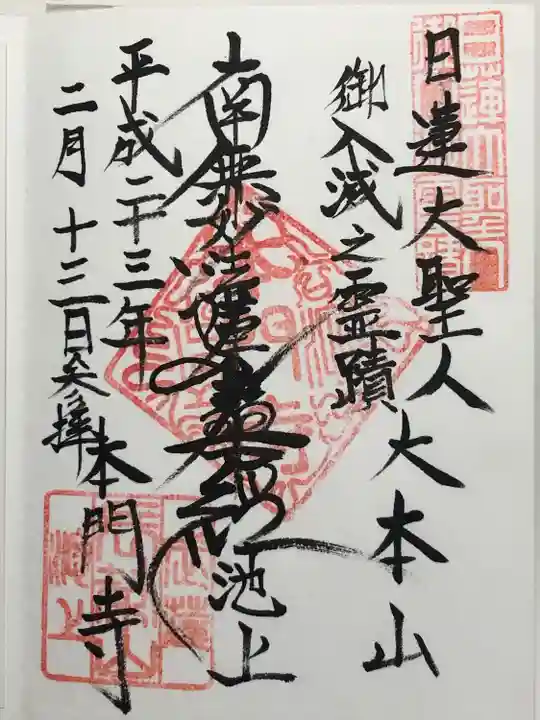 日蓮大聖人
御入滅之霊蹟
大本山
南無妙法蓮華経
池上
本門寺
平成二十三年
二月十三日参拝